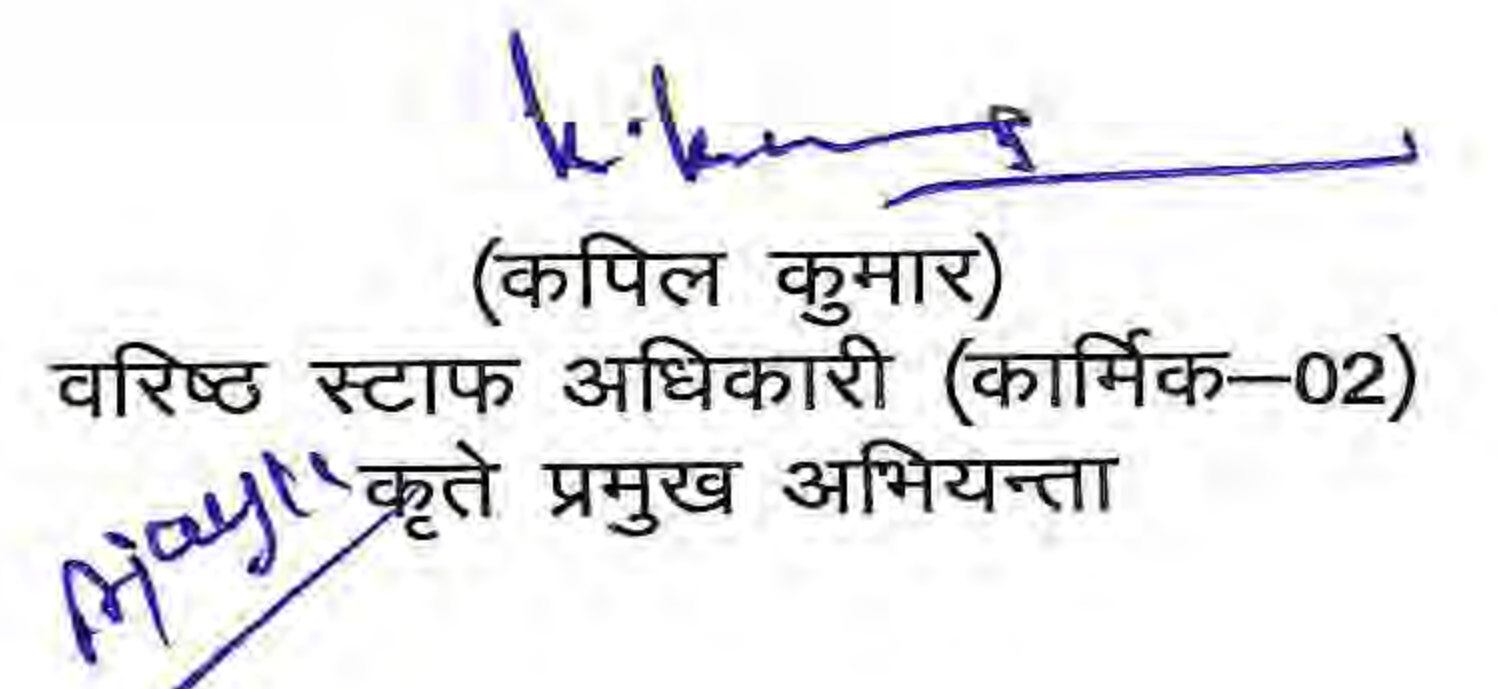 K. Kumar
(कपिल कुमार)
वरिष्ठ स्टाफ अधिकारी (कार्मिक–02)
कृते प्रमुख अभियन्ता